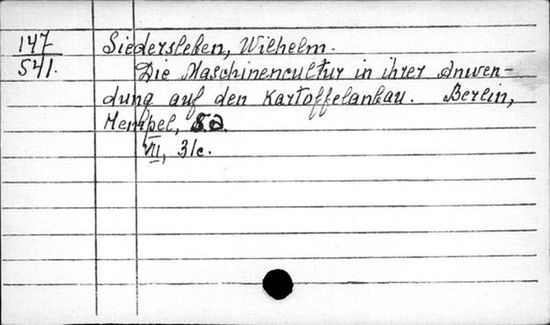 147 Siedersleben, Wilhelm.
541. Die Maschinencultur in ihrer Anwen-
dung auf den Kartoffelanbau. Berlin,
Hempel,
VII, 31c.